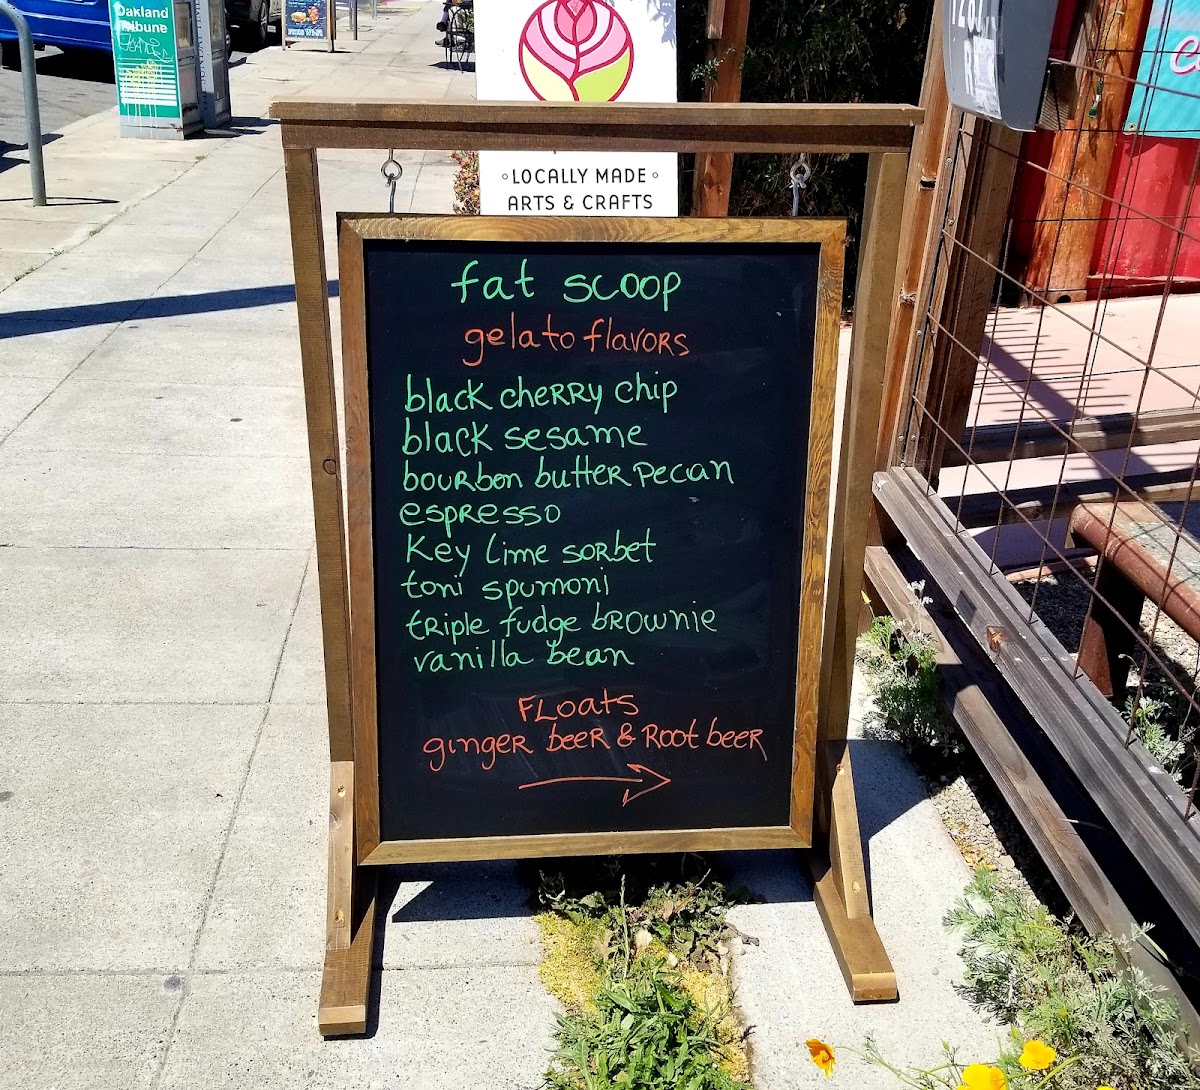 Oakland
Tribune
LOCALLY MADE
ARTS & CRAFTS
fat scoop
gelato flavors
black cherry chip
black sesame
bourbon butter pecan
espresso
Key lime sorbet
toni spumoni
triple fudge brownie
vanilla bean
FLoats
ginger beer & Root beer